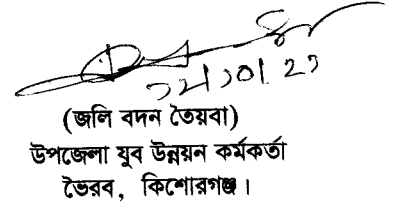 (জলি বদন তৈয়বা)
উপজেলা যুব উন্নয়ন কর্মকর্তা
ভৈরব, কিশোরগঞ্জ।